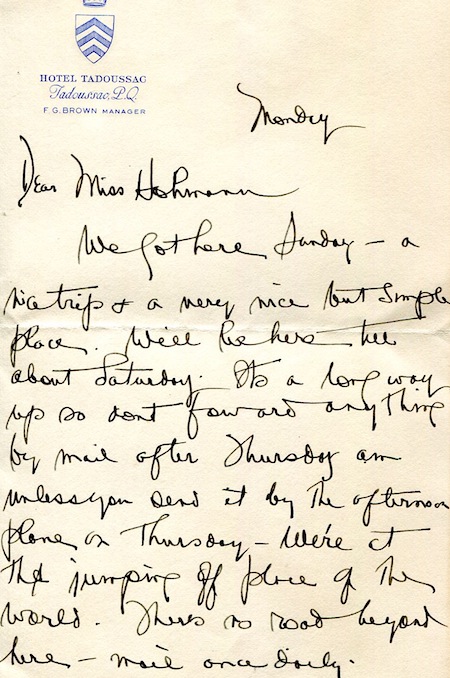 HOTEL TADOUSSAC
Tadoussac, P.Q.
F. G. BROWN MANAGER
Monday
Dear Miss Hohmann
We got here Sunday – a
nice trip & a very nice but simple
place. We'll be here till
about Saturday. Its a long way
up so dont forward anything
by mail after Thursday am
unless you send it by the afternoon
plane on Thursday – We're at
the jumping off place of the
world. There's no road beyond
here – mail once daily.